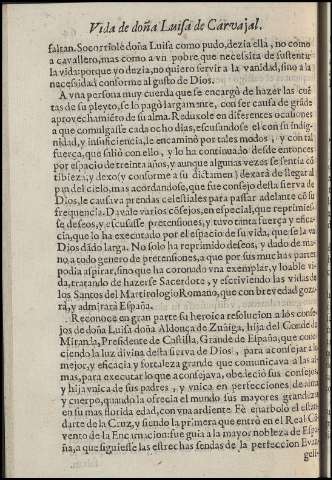 Vida de doña Luisa de Carvajal.
faltan. Socorriole doña Luisa como pudo, dezia ella, no como
a cavallero, mas como a vn pobre que necessita de sustentar
la vida: porque yo dezia, no quiero servir a la vanidad, sino a la
necessidad conforme al gusto de Dios.
A vna persona muy cuerda que se encargò de hazer las cuẽ
tas de su pleyto, se lo pagò largamente, con ser causa de grãde
aprovechamiẽto de su alma. Reduxole en diferentes ocasiones
a que comulgasse cada ocho dias, escusandose el con su indig-
nidad, y insuficiencia, le encaminò por tales modos, y con tal
fuerça, que saliò con ello, y lo ha continuado desde entonces
por espacio de treinta años, y aunque algunas vezes se sentia cõ
tibieza, y dexo (y conforme a su dictamen) dexarà de llegar al
pan del cielo, mas acordandose, que fue consejo desta sierva de
Dios, le causava prendas celestiales para passar adelante cõ su
frequencia. Davale varios cõsejos, en especial, que reprimiesse
deseos, y escusasse pretensiones, y tuvo tanta fuerça y efica-
cia, que lo ha executado por el espacio de su vida, que se la va
Dios dãdo larga. No solo ha reprimido deseos, y dado de ma-
no, a todo genero de pretensiones, a que por sus muchas partes
podia aspirar, sino que ha coronado vna exemplar, y loable vi-
da, tratando de hazerse Sacerdote, y escriviendo las vidas de
los Santos del Martirologio Romano, que con brevedad goza-
rà, y admirarà España.
Reconoce en gran parte su heroica resolucion a los conse-
jos de doña Luisa doña Aldonça de Zuñiga, hija del Conde de
Miranda, Presidente de Castilla, Grande de España, que cono-
ciendo la luz divina desta sierva de Dios, para aconsejar a lo
mejor, y eficacia y fortaleza grande que comunicava a las al-
mas, para executar lo que aconsejava, obedeciò sus consejos,
y hija vnica de sus padres, y vnica en perfecciones de alma
y cuerpo, quando la ofrecia el mundo sus mayores grandezas
en su mas florida edad, con vna ardiente Fè enarbolò el estan-
darte de la Cruz, y siendo la primera que entrò en el Real Cõ-
vento de la Encarnacion: fue guia a la mayor nobleza de Espa-
ña, a que siguiesse las estrechas sendas de la perfeccion Evan-
geli-